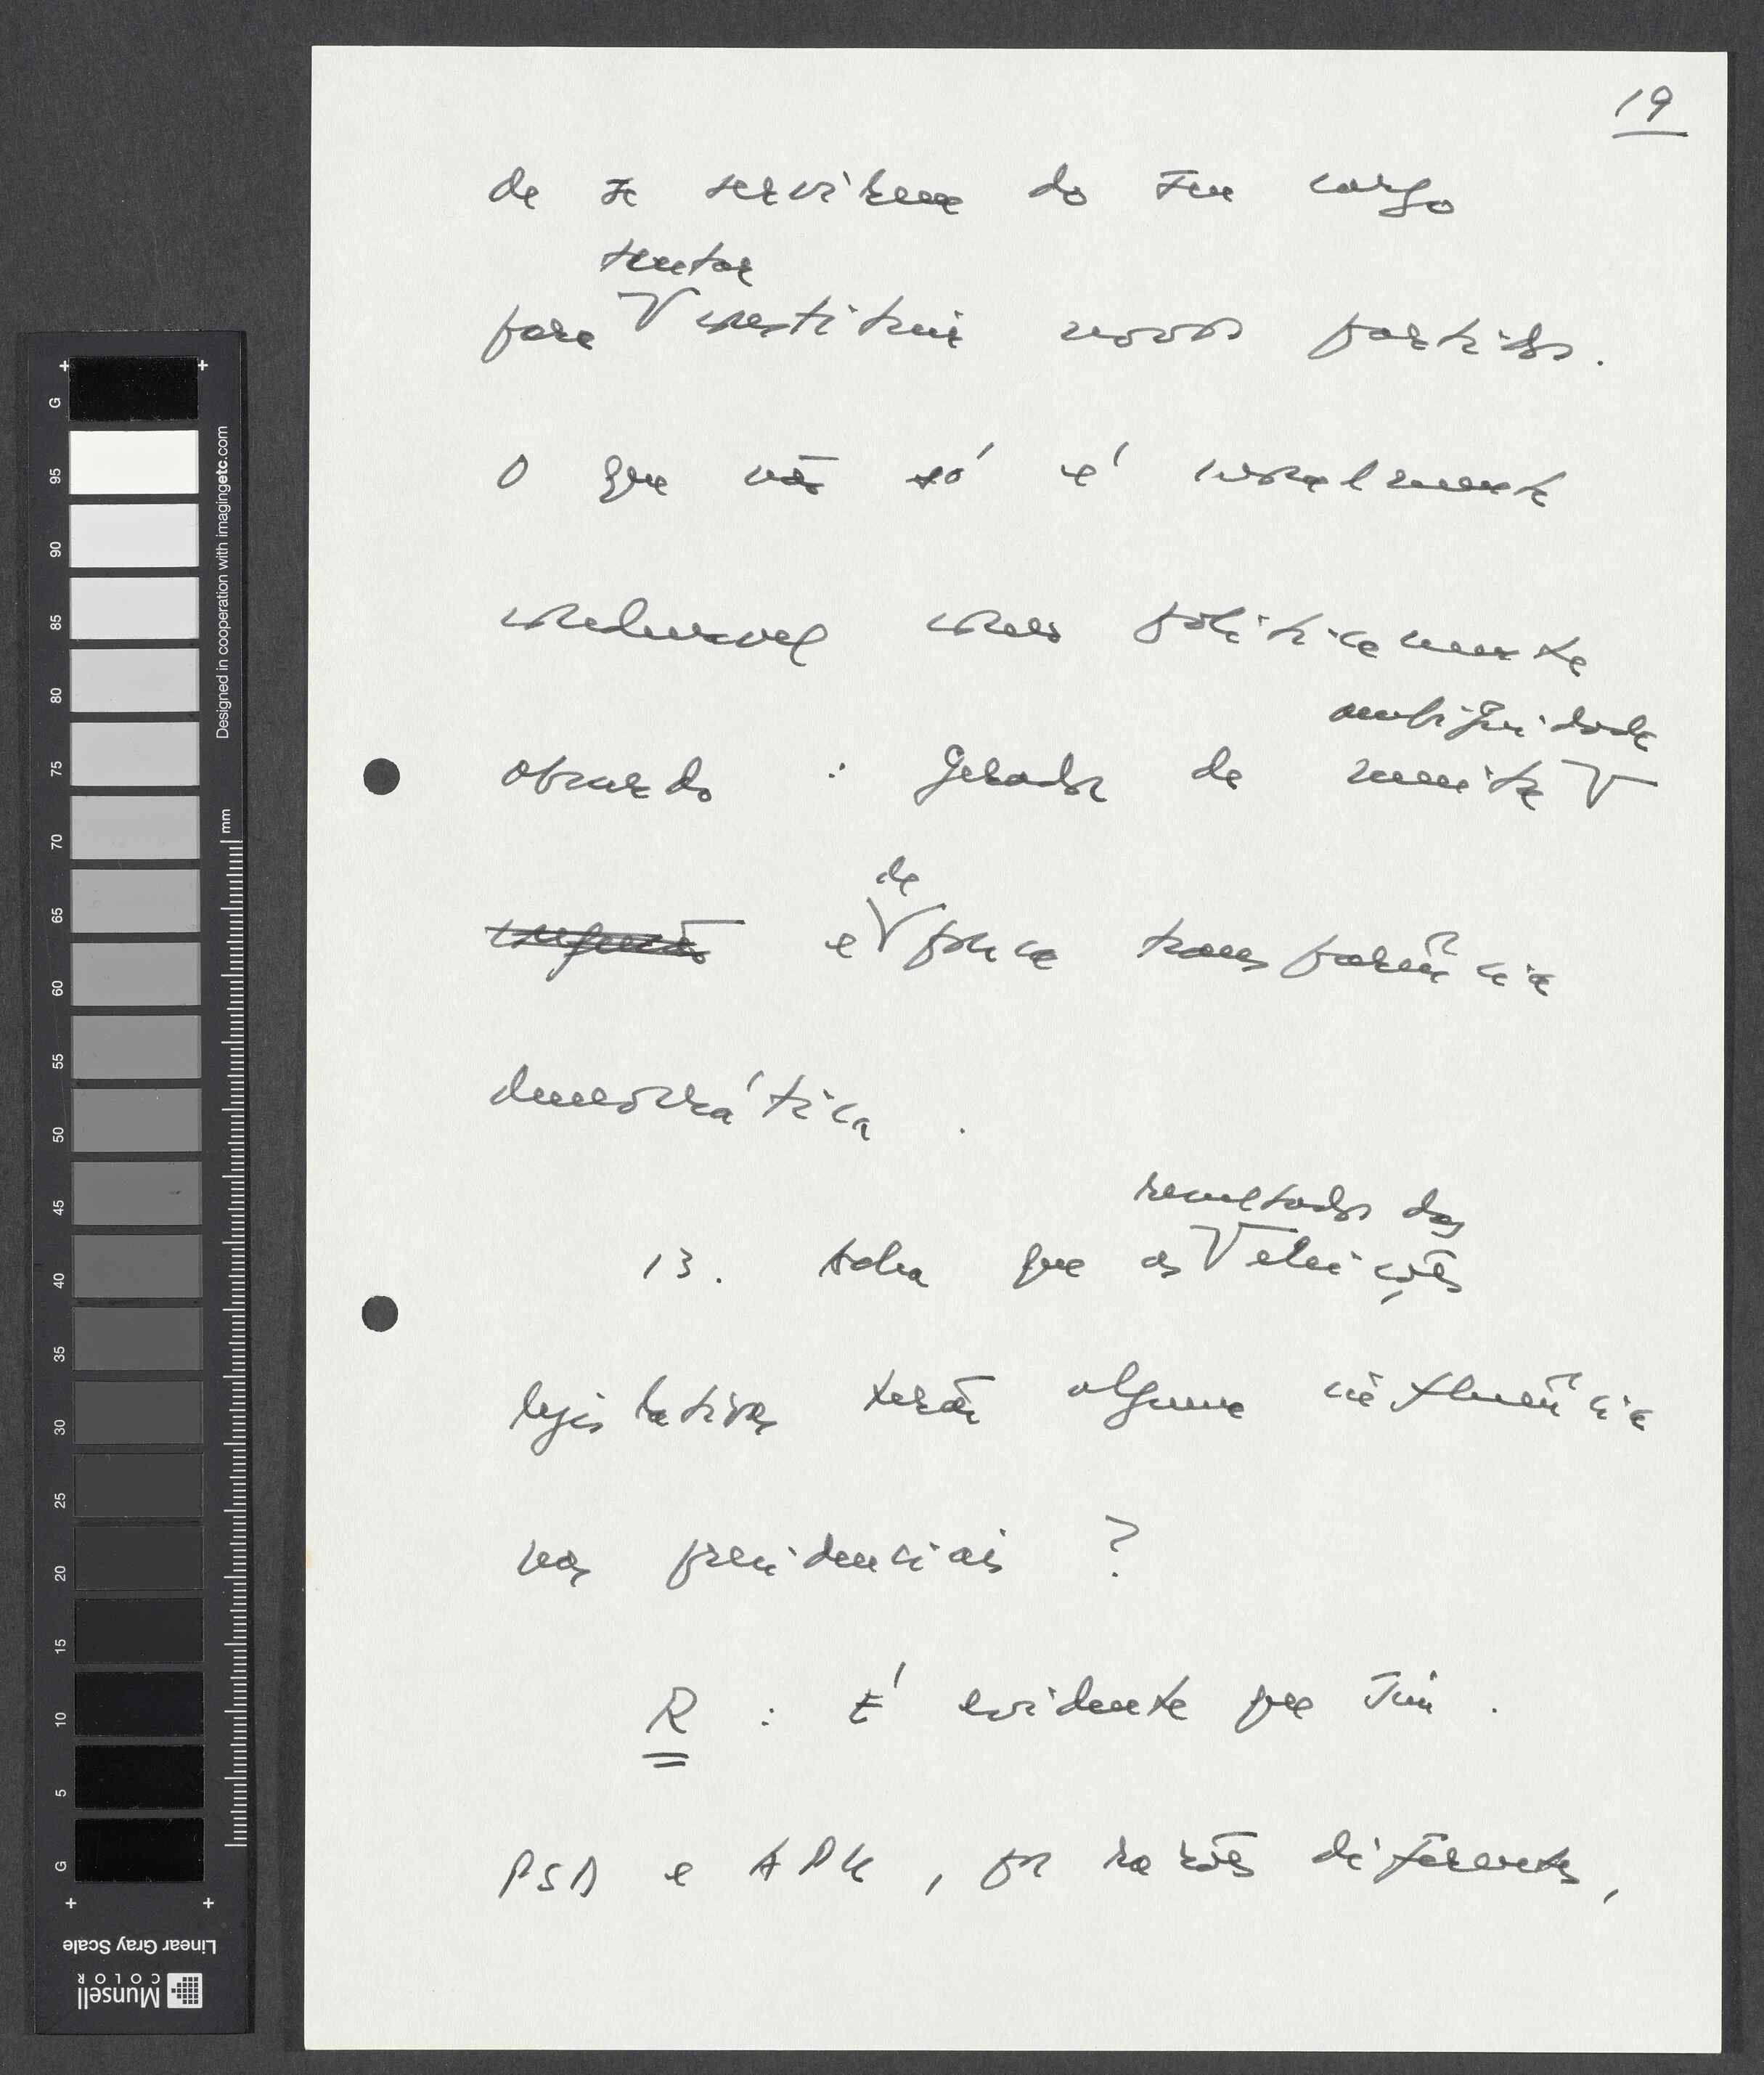 19
de se servirem do seu cargo
tentar
para V constituir novos partidos.
O que não só é moralmente
condenável como politicamente
ambiguidade
absurdo : gerador de muita V
de
confusão e V pouca transparência
democrática .
resultados das
13. Acha que os V eleições
legislativas terão alguma influência
nas presidenciais ?
R : É evidente que sim .
PSD e APU , por razões diferentes,
Designed in cooperation with imagingetc.com
mm
G
95
90
85
80
75
70
65
60
55
50
45
40
35
30
25
20
15
10
5
G
Linear Gray Scale
Munsell
COLOR